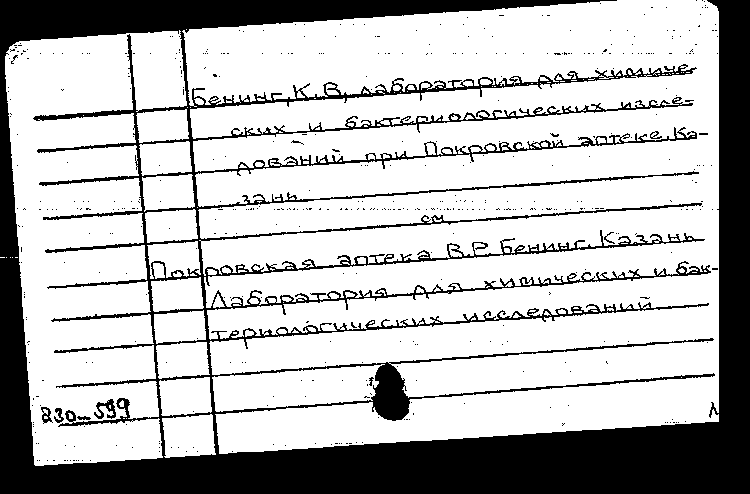 Бенинг, К. В, лаборатория для химиче-
ских и бактериологических иссле-
дований при Покровской аптеке. Ка-
зань
см
Покровская аптека В.Р. Бенинг. Казань
Лаборатория для химических и бак-
териологических исследований
230-599